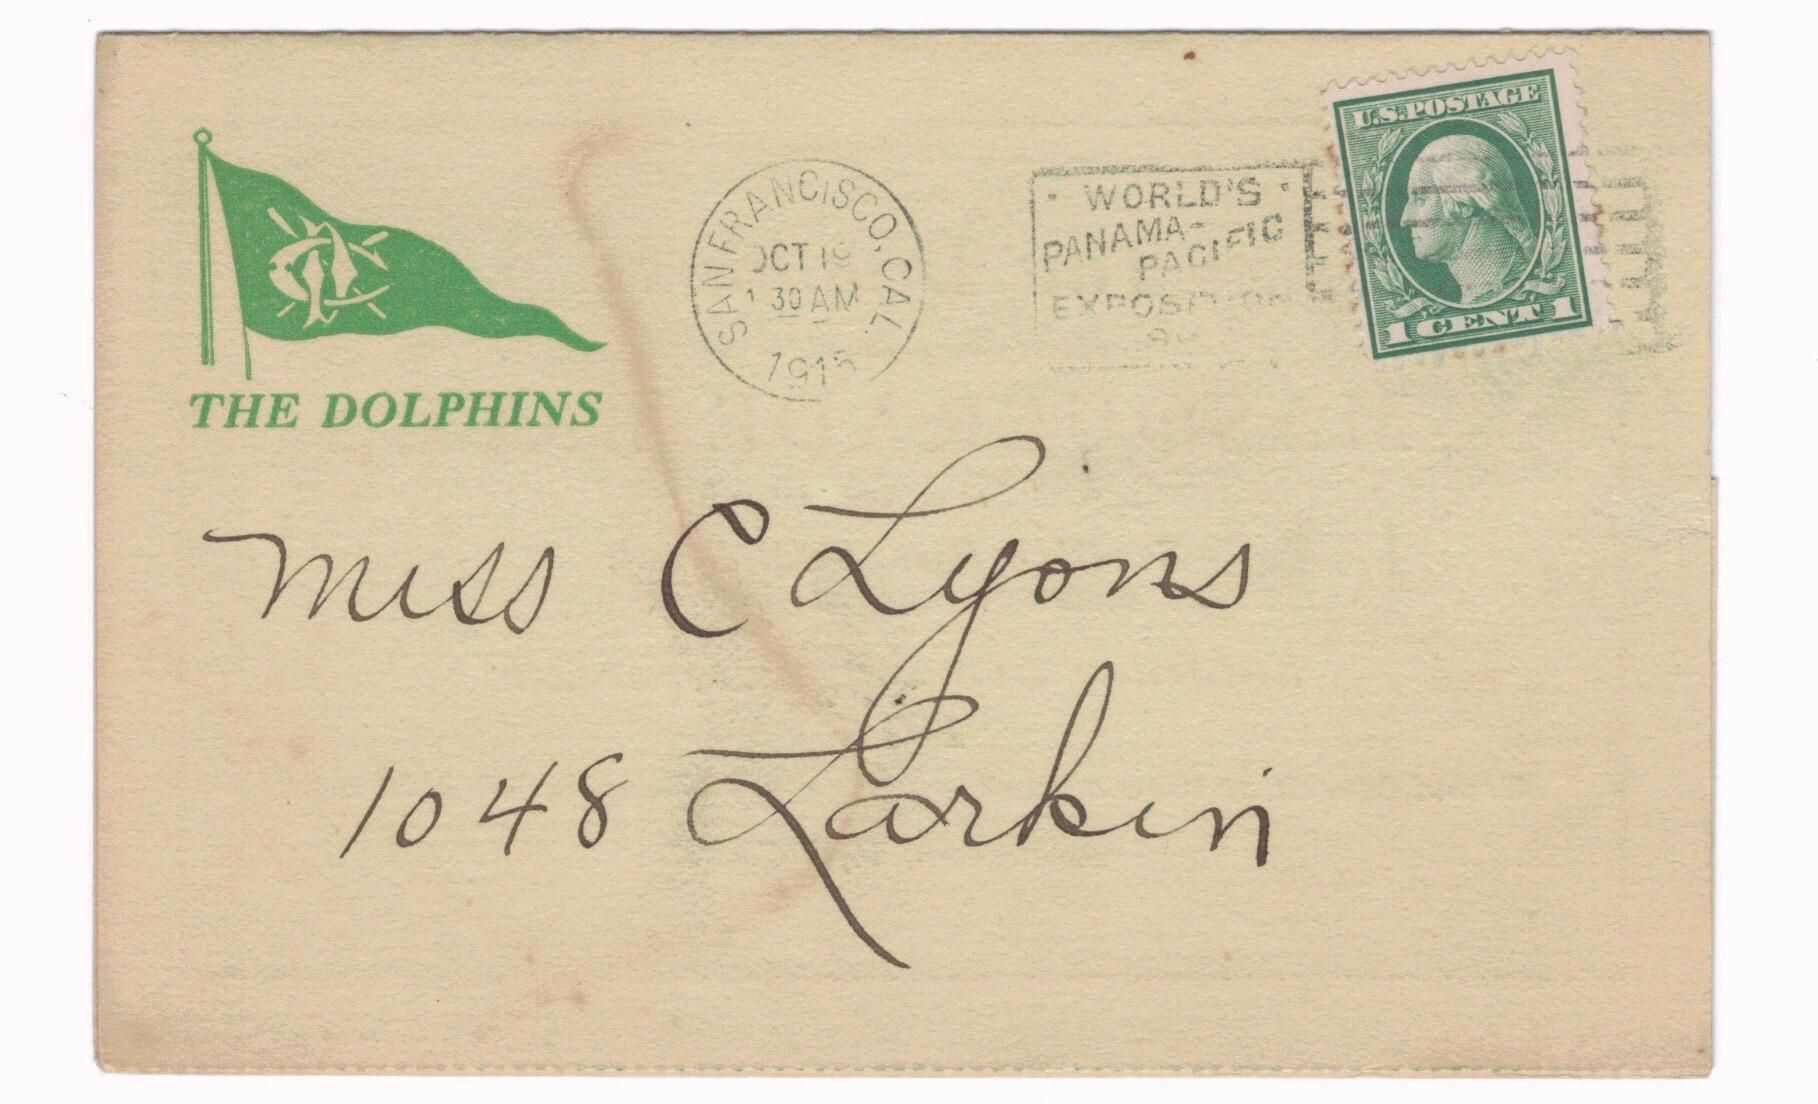 THE DOLPHINS
SAN FRANCISCO, CAL.
OCT
30 AM
1915
WORLD'S
PANAMA-
PACIFIC
EXPOSITION
U.S. POSTAGE
1 CENT 1
Miss C Lyons
1048 Larkin